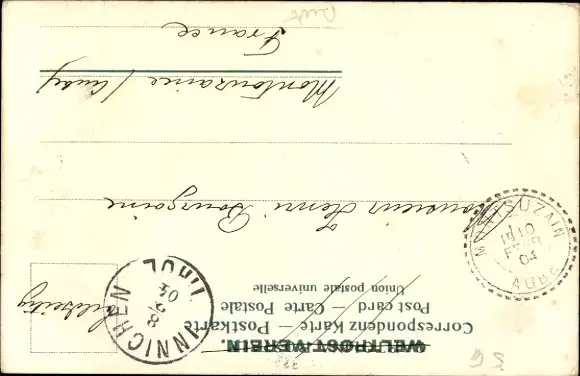 WELTPOSTVEREIN.
Correspondenz Karte — Postkarte
Post card — Carte Postale
Union postale universelle
INNICHEN
TIROL
8 2 04
MONTSUZAIN
10
FEVR
04
AUBE
Monsieur Henri Bourgoine
Montsuzain (Aube)
France